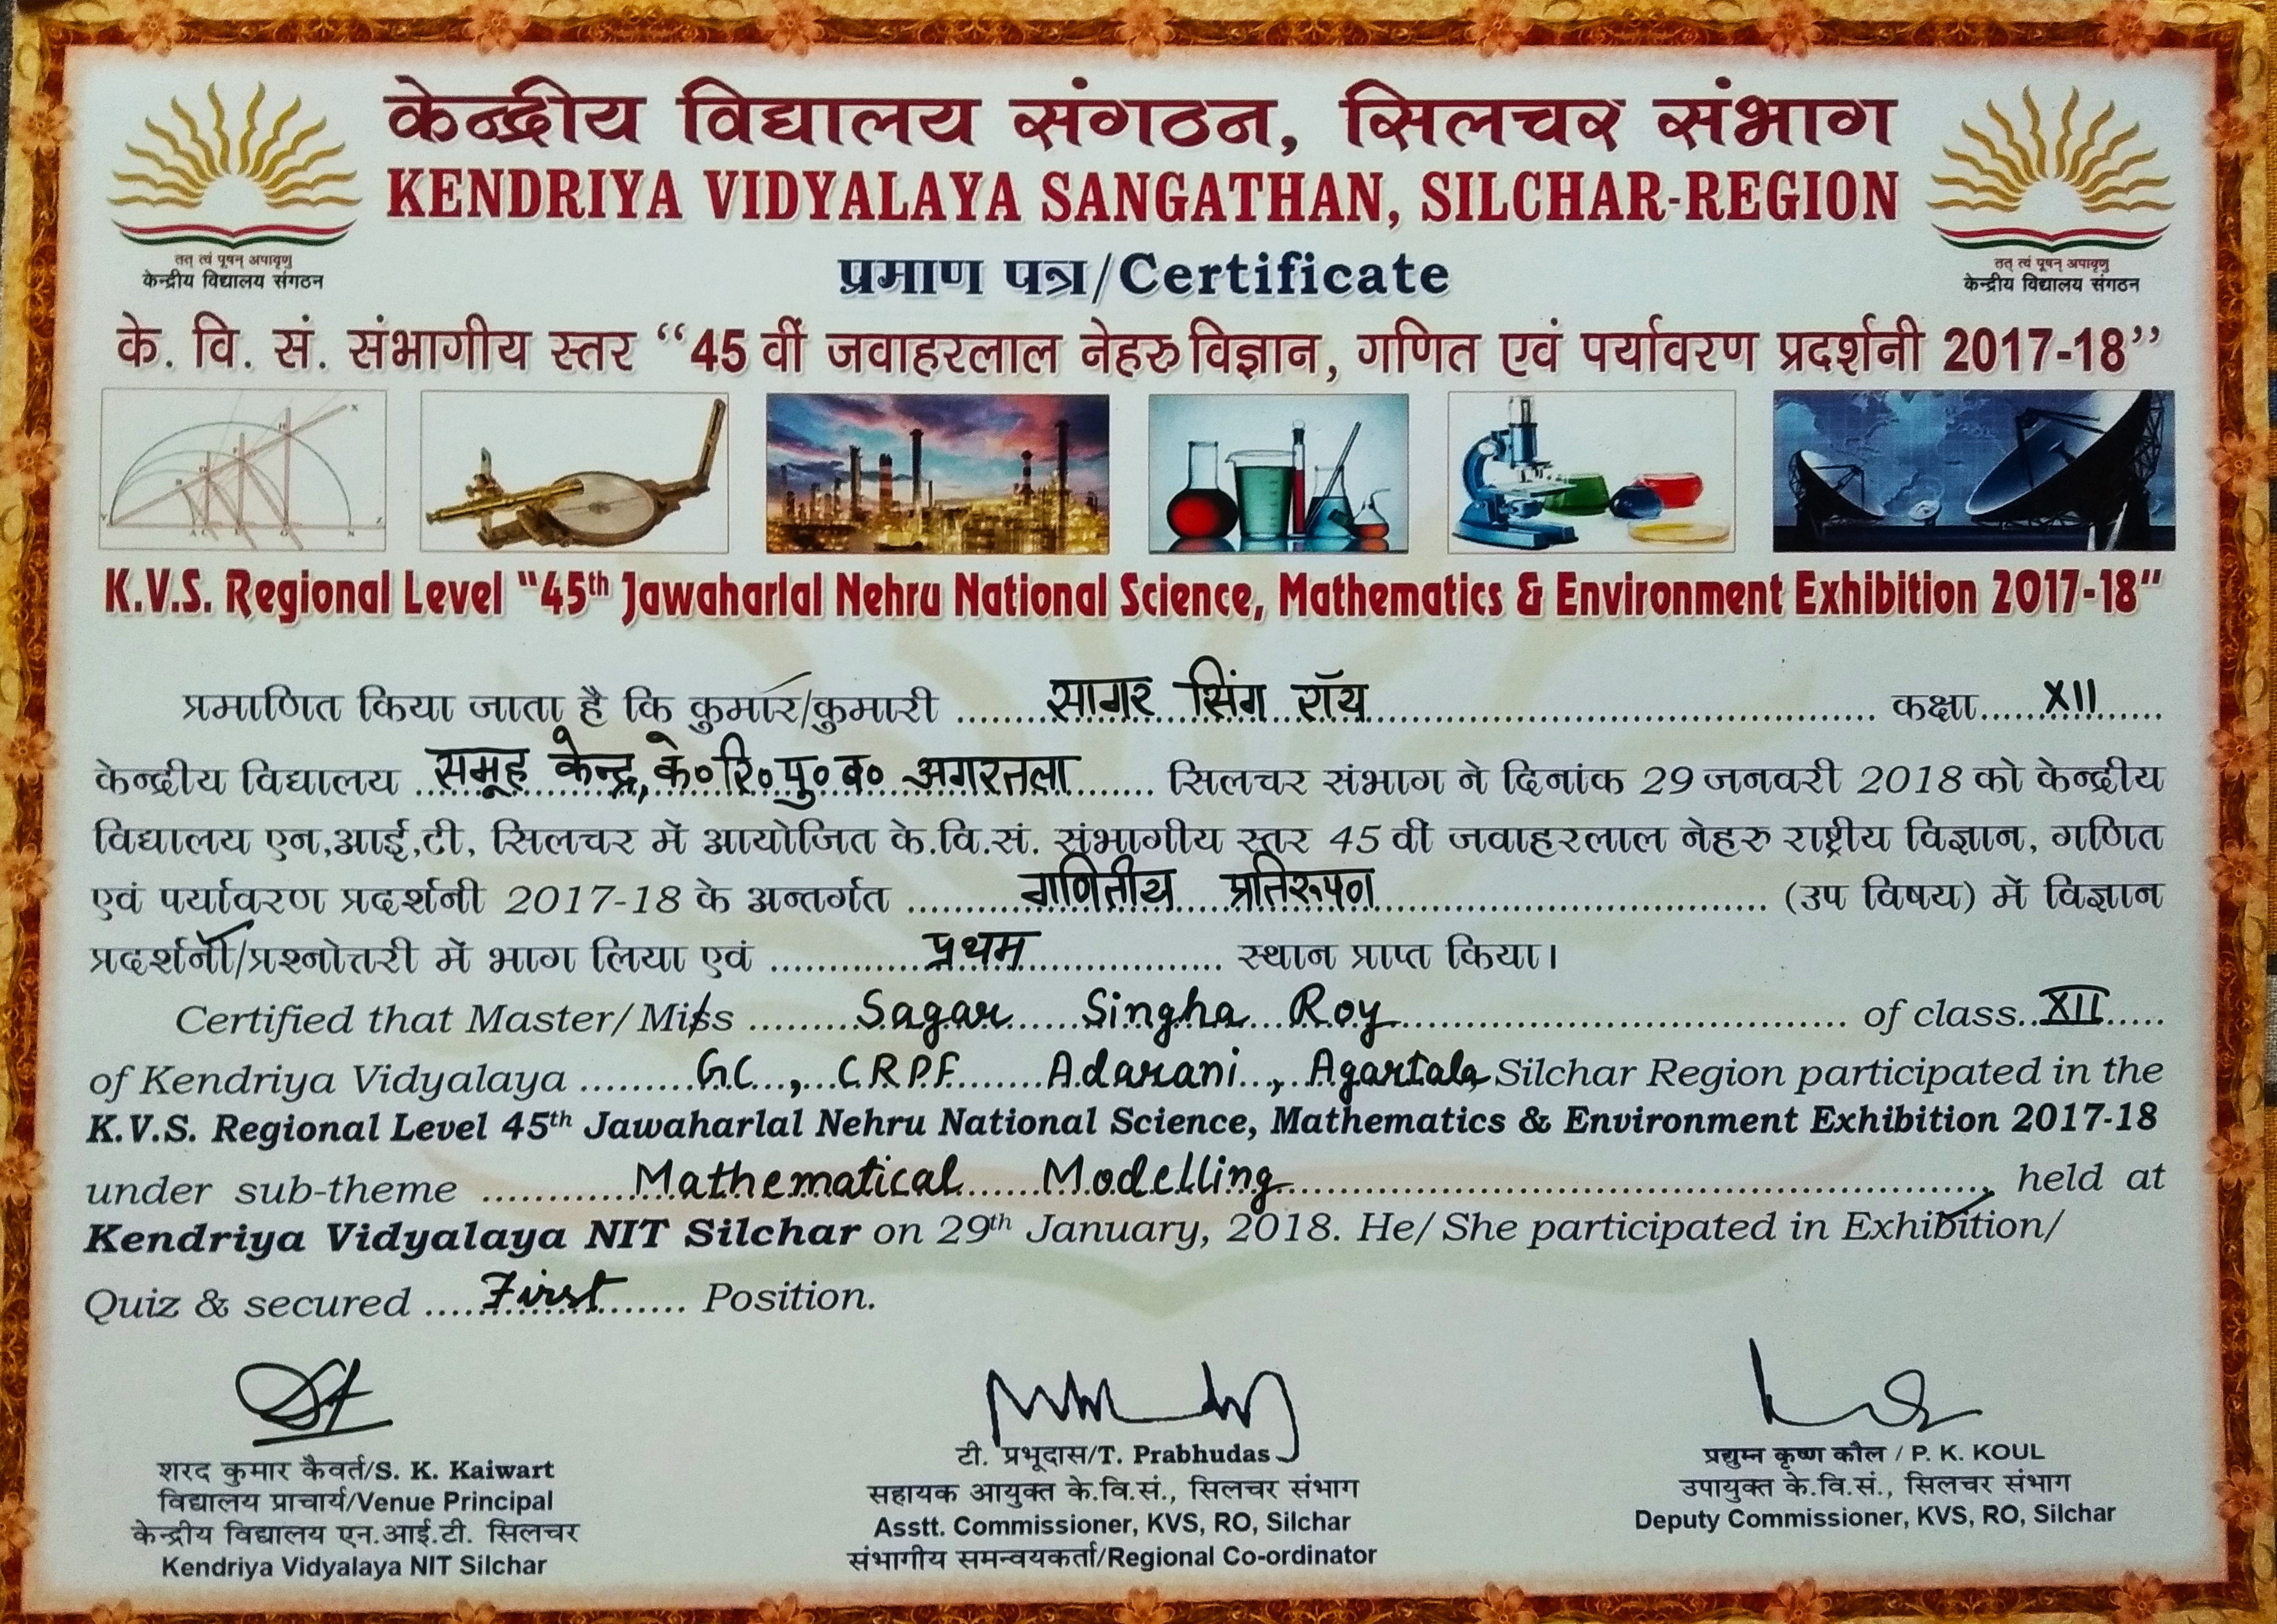 केन्द्रीय विद्यालय संगठन, सिलचर संभाग
KENDRIYA VIDYALAYA SANGATHAN, SILCHAR-REGION
तत् त्वं पूषन् अपावृणु
केन्द्रीय विद्यालय संगठन
तत् त्वं पूषन् अपावृणु
केन्द्रीय विद्यालय संगठन
प्रमाण पत्र/Certificate
के. वि. सं. संभागीय स्तर “45 वीं जवाहरलाल नेहरु विज्ञान, गणित एवं पर्यावरण प्रदर्शनी 2017-18”
K.V.S. Regional Level "45th Jawaharlal Nehru National Science, Mathematics & Environment Exhibition 2017-18"
प्रमाणित किया जाता है कि कुमार/कुमारी सागर सिंग रॉय कक्षा XII
केन्द्रीय विद्यालय समूह केन्द्र, के० रि० पु० ब० अगरतला सिलचर संभाग ने दिनांक 29 जनवरी 2018 को केन्द्रीय
विद्यालय एन,आई,टी, सिलचर में आयोजित के.वि.सं. संभागीय स्तर 45 वीं जवाहरलाल नेहरु राष्ट्रीय विज्ञान, गणित
एवं पर्यावरण प्रदर्शनी 2017-18 के अन्तर्गत गणितीय प्रतिरूपण (उप विषय) में विज्ञान
प्रदर्शनी/प्रश्नोत्तरी में भाग लिया एवं प्रथम स्थान प्राप्त किया।
Certified that Master/Miss Sagar Singha Roy of class XII
of Kendriya Vidyalaya G.C., C.R.P.F. Adarani, Agartala Silchar Region participated in the
K.V.S. Regional Level 45th Jawaharlal Nehru National Science, Mathematics & Environment Exhibition 2017-18
under sub-theme Mathematical Modelling, held at
Kendriya Vidyalaya NIT Silchar on 29th January, 2018. He/She participated in Exhibition/
Quiz & secured First Position.
शरद कुमार कैवर्त/S. K. Kaiwart
विद्यालय प्राचार्य/Venue Principal
केन्द्रीय विद्यालय एन.आई.टी. सिलचर
Kendriya Vidyalaya NIT Silchar
टी. प्रभूदास/T. Prabhudas
सहायक आयुक्त के.वि.सं., सिलचर संभाग
Asstt. Commissioner, KVS, RO, Silchar
संभागीय समन्वयकर्ता/Regional Co-ordinator
प्रद्युम्न कृष्ण कौल / P. K. KOUL
उपायुक्त के.वि.सं., सिलचर संभाग
Deputy Commissioner, KVS, RO, Silchar